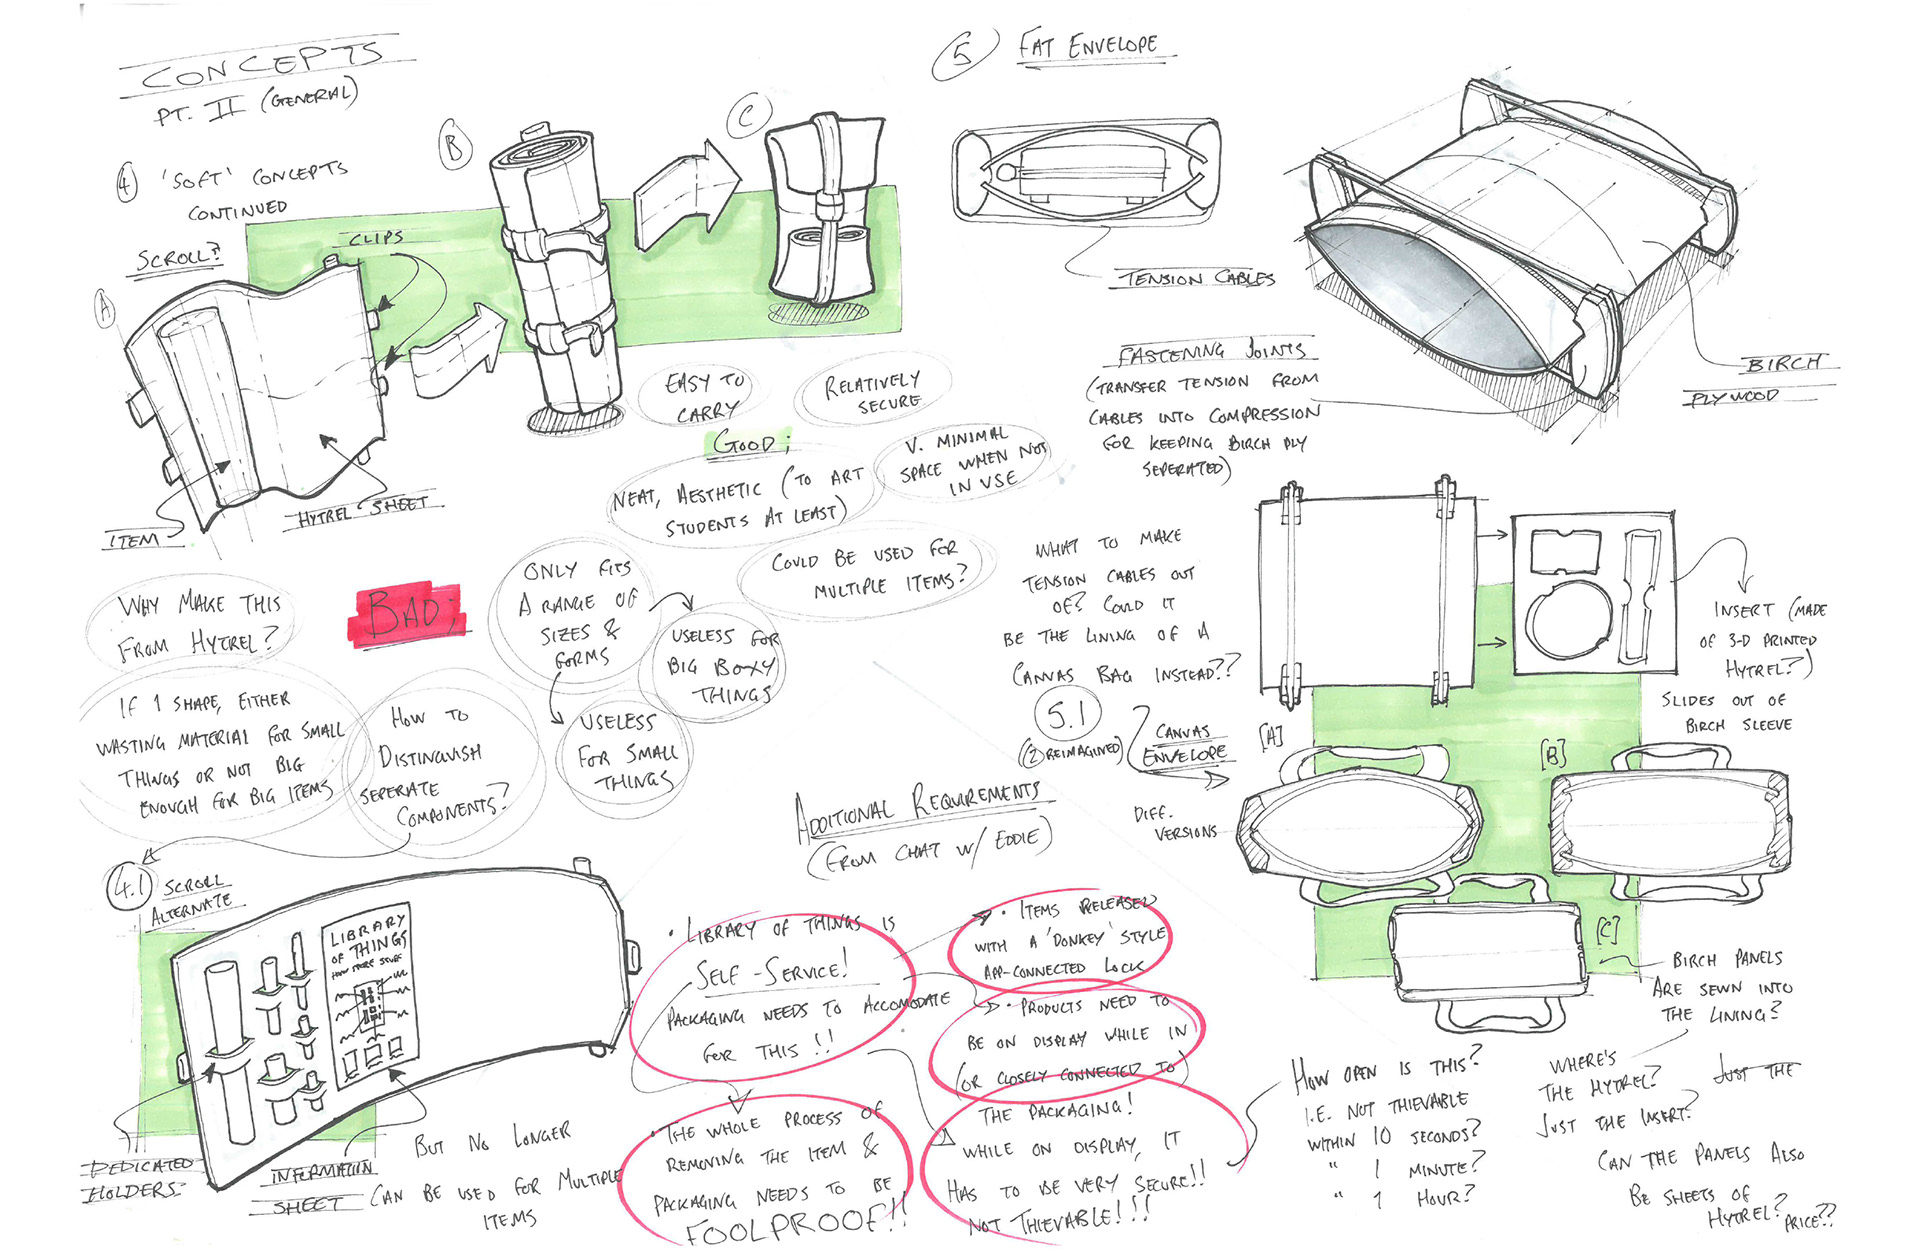 CONCEPTS
PT. II (GENERAL)
4 'SOFT' CONCEPTS
CONTINUED
SCROLL?
CLIPS
A
B
C
ITEM
HYTREL SHEET
EASY TO
CARRY
RELATIVELY
SECURE
GOOD;
NEAT, AESTHETIC (TO ART
STUDENTS AT LEAST)
V. MINIMAL
SPACE WHEN NOT
IN USE
COULD BE USED FOR
MULTIPLE ITEMS?
BAD;
WHY MAKE THIS
FROM HYTREL?
IF 1 SHAPE, EITHER
WASTING MATERIAL FOR SMALL
THINGS OR NOT BIG
ENOUGH FOR BIG ITEMS
HOW TO
DISTINGUISH
SEPERATE
COMPONENTS?
ONLY FITS
A RANGE OF
SIZES &
FORMS
USELESS FOR
BIG BOXY
THINGS
USELESS
FOR SMALL
THINGS
4.1 SCROLL
ALTERNATE
LIBRARY
OF THINGS
DEDICATED
HOLDERS
INFORMATION
SHEET
BUT NO LONGER
CAN BE USED FOR MULTIPLE
ITEMS
ADDITIONAL REQUIREMENTS
(FROM CHAT W/ EDDIE)
• LIBRARY OF THINGS IS
SELF-SERVICE!
PACKAGING NEEDS TO ACCOMODATE
FOR THIS!!
• ITEMS RELEASED
WITH A 'DONKEY' STYLE
APP-CONNECTED LOCK
• PRODUCTS NEED TO
BE ON DISPLAY WHILE IN
(OR CLOSELY CONNECTED TO)
THE PACKAGING!
WHILE ON DISPLAY, IT
HAS TO BE VERY SECURE!!
NOT THIEVABLE!!!
• THE WHOLE PROCESS OF
REMOVING THE ITEM &
PACKAGING NEEDS TO BE
FOOLPROOF!!
HOW OPEN IS THIS?
I.E. NOT THIEVABLE
WITHIN 10 SECONDS?
" 1 MINUTE?
" 1 HOUR?
5 FAT ENVELOPE
TENSION CABLES
FASTENING JOINTS
(TRANSFER TENSION FROM
CABLES INTO COMPRESSION
FOR KEEPING BIRCH PLY
SEPERATED)
BIRCH
PLYWOOD
WHAT TO MAKE
TENSION CABLES OUT
OF? COULD IT
BE THE LINING OF A
CANVAS BAG INSTEAD??
INSERT (MADE
OF 3-D PRINTED
HYTREL?)
SLIDES OUT OF
BIRCH SLEEVE
5.1
(2 REIMAGINED)
CANVAS
ENVELOPE
DIFF.
VERSIONS
[A]
[B]
[C]
BIRCH PANELS
ARE SEWN INTO
THE LINING?
WHERE'S
THE HYTREL?
JUST THE INSERT?
JUST THE
CAN THE PANELS ALSO
BE SHEETS OF
HYTREL? PRICE??